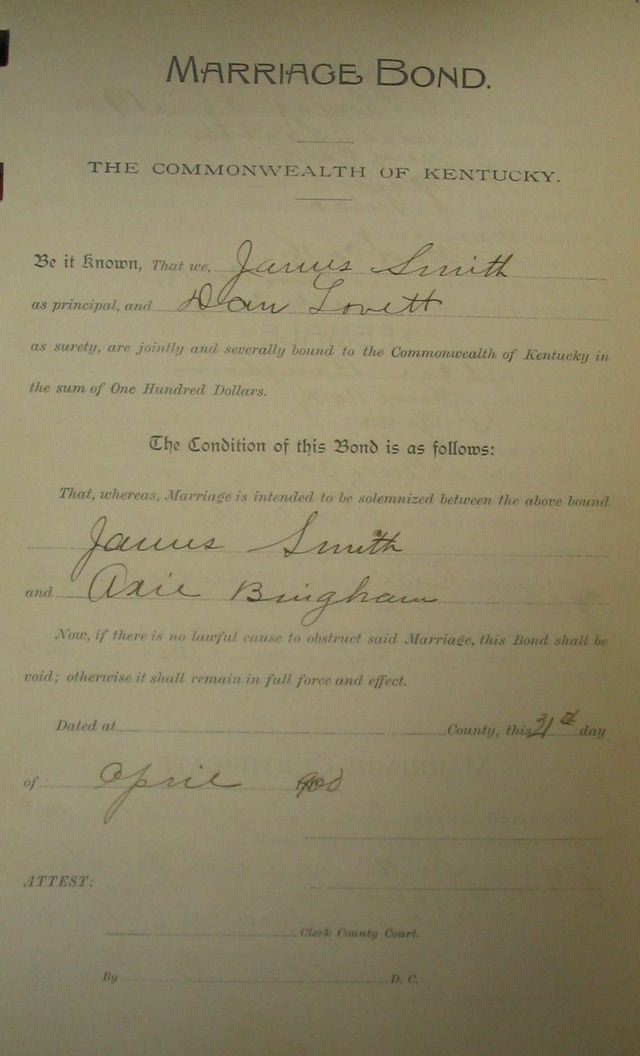 MARRIAGE BOND.
THE COMMONWEALTH OF KENTUCKY.
Be it Known, That we, James Smith
as principal, and Dan Lovett
as surety, are jointly and severally bound to the Commonwealth of Kentucky in
the sum of One Hundred Dollars.
The Condition of this Bond is as follows:
That, whereas, Marriage is intended to be solemnized between the above bound
James Smith
and Axie Bingham
Now, if there is no lawful cause to obstruct said Marriage, this Bond shall be
void; otherwise it shall remain in full force and effect.
Dated at County, this day
of April
ATTEST:
Clerk County Court.
By D. C.